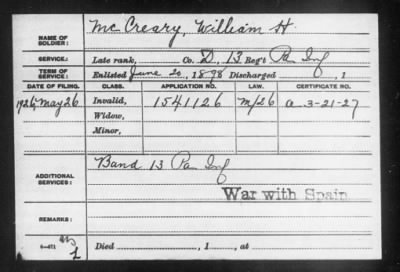 NAME OF SOLDIER: McCreary, William H.
SERVICE: Late rank, Co. D, 13 Reg't Pa Inf
TERM OF SERVICE: Enlisted June 20, 1898 Discharged , 1
DATE OF FILING. CLASS. APPLICATION NO. LAW. CERTIFICATE NO.
1926, May 26 Invalid, 1541126 M/26 a 3-21-27
Widow,
Minor,
ADDITIONAL SERVICES: Band 13 Pa Inf
War with Spain
REMARKS:
Died , 1 , at